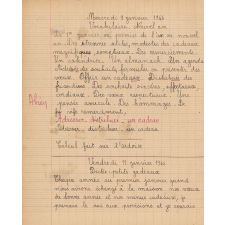 Mercredi 9 janvier 1946
Vocabulaire : Nouvel an
Le 1er janvier ou premier de l'an ou nouvel
an. Des étrennes utiles, modestes des cadeaux
magnifiques somptueux. Des remerciements.
Un calendrier. Un almanach. Un agenda
souhaits formulés ou
vœux. Offrir un cadeau. Distribuer des
friandises. Des souhaits sincères affectueux
Des vœux
pensée amicale. Des hommages.
remerciement.
Adresser, distribuer, un cadeau
Adresser, distribuer, un cadeau
Calcul fait sur l'ardoise
Vendredi 11 janvier 1946
Dictée : petits cadeaux
Chaque année au premier janvier quand
nous avions échangé à la maison nos vœux
de bonne année et nos menus cadeaux, je
prenais le sac aux provisions et je